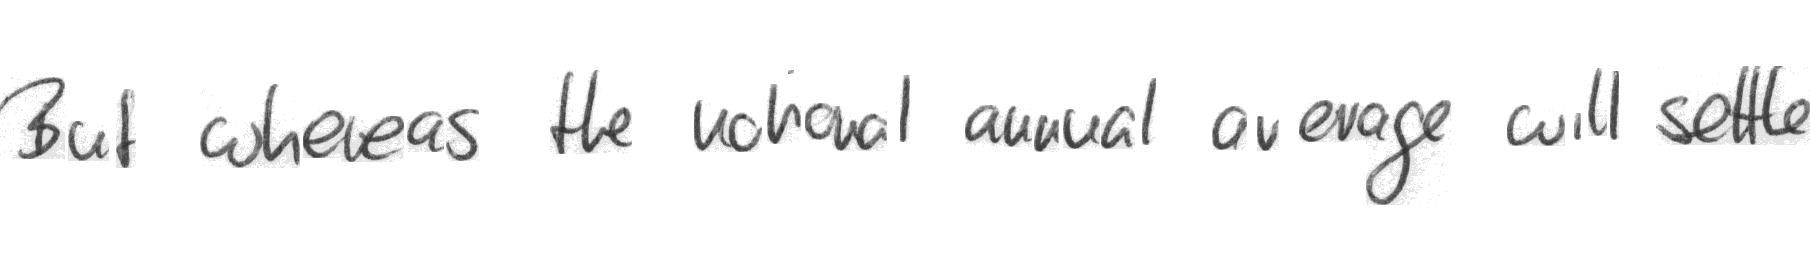 But whereas the national annual average will settle